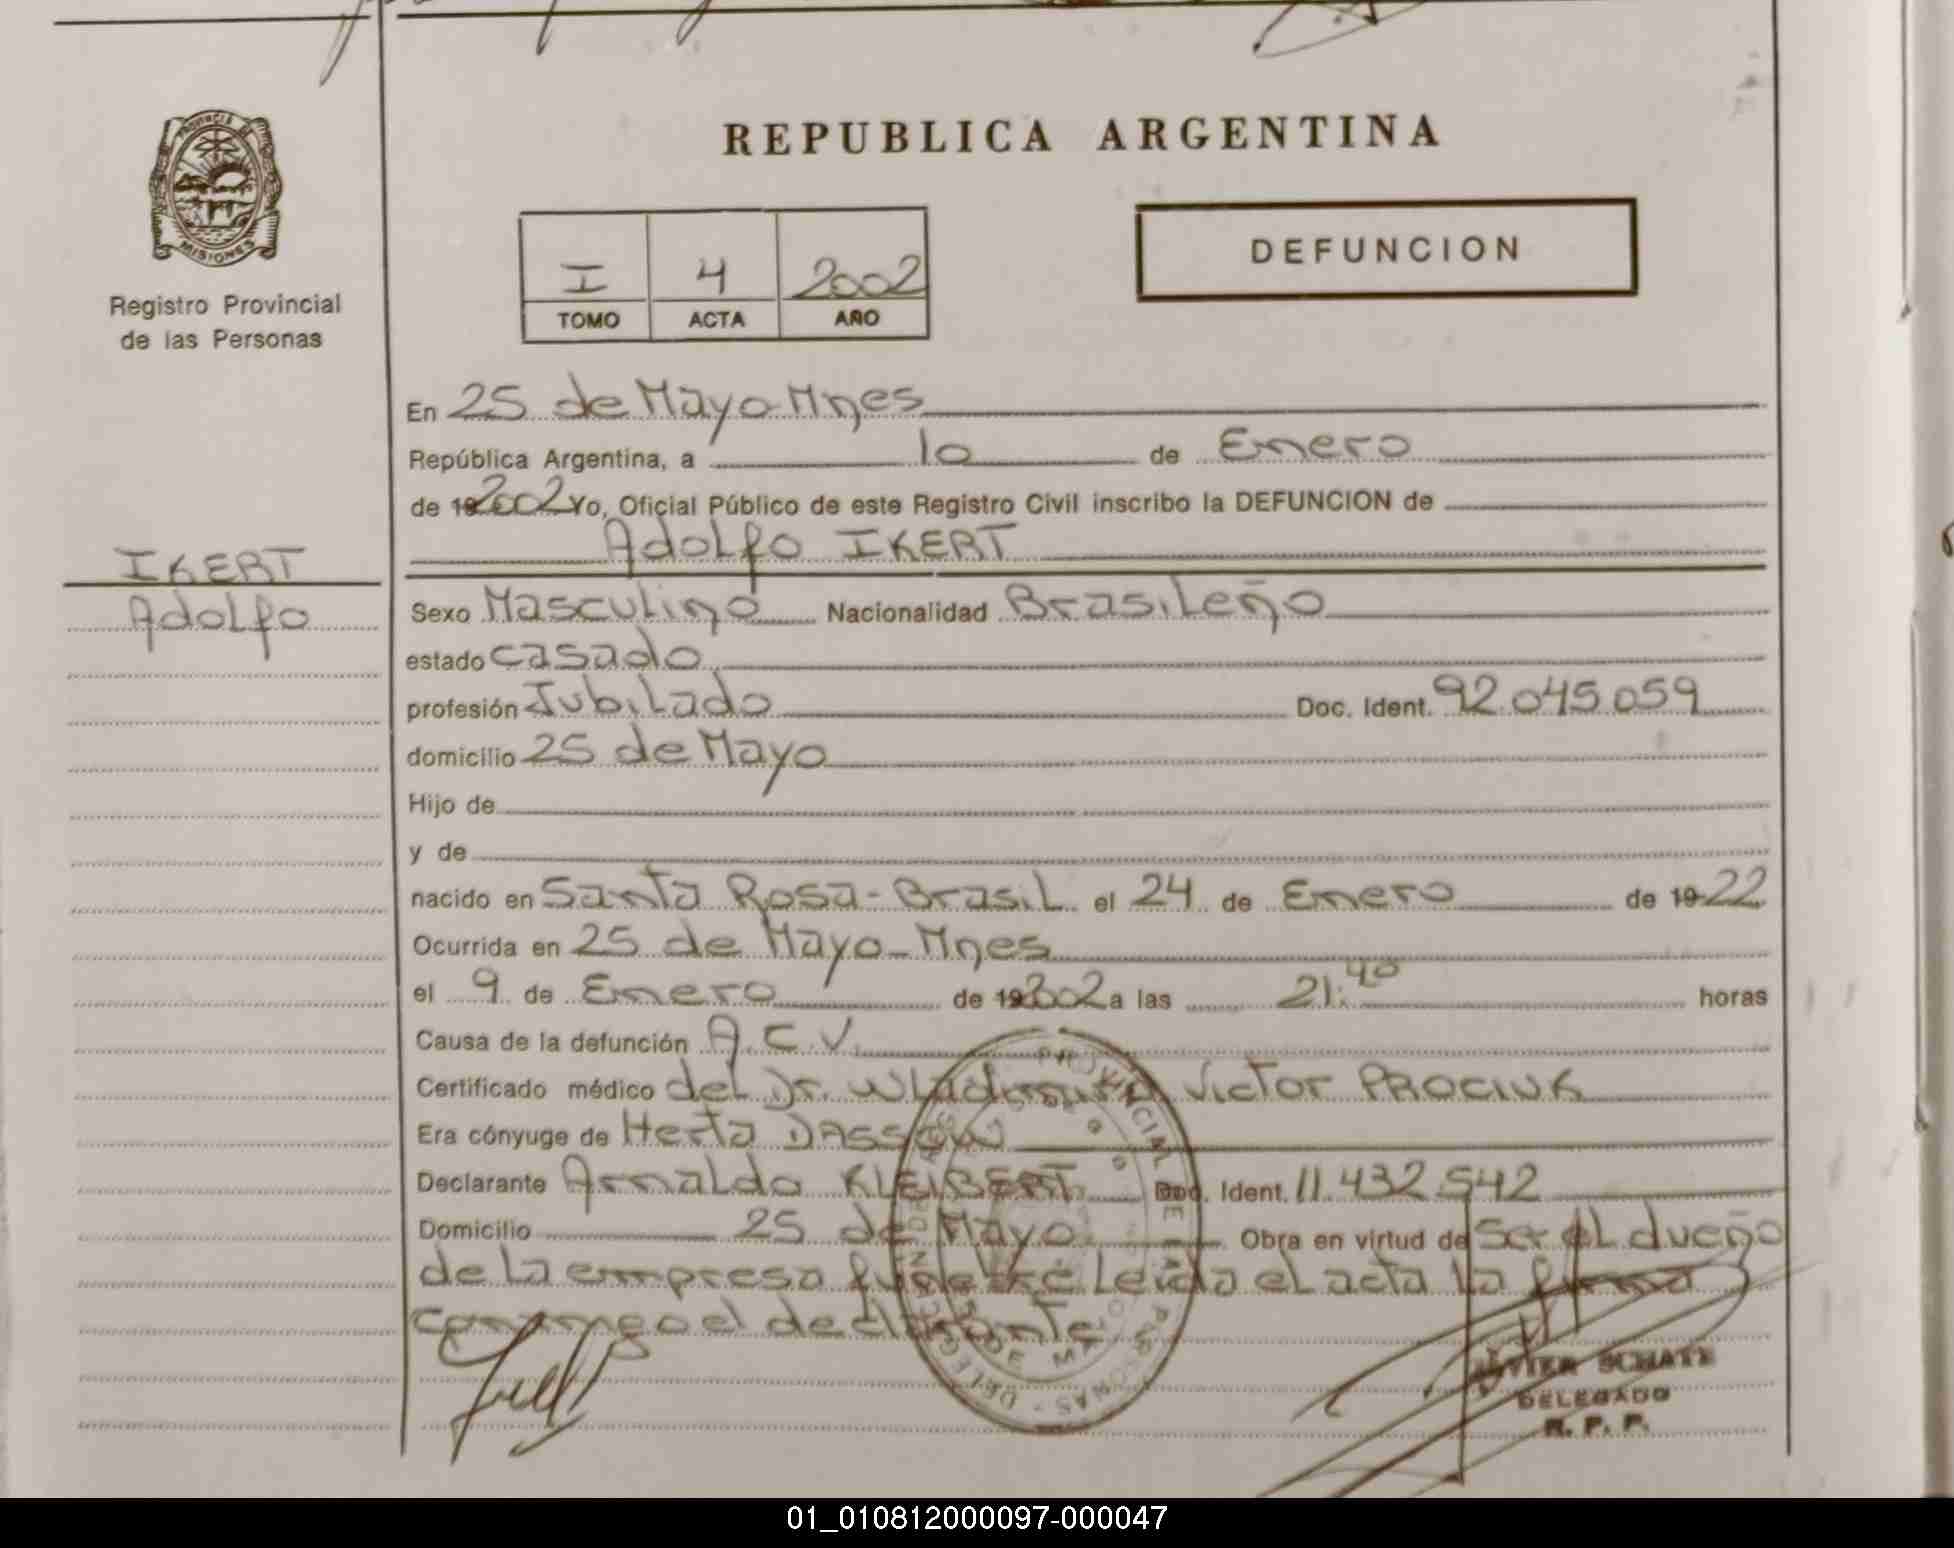 REPUBLICA ARGENTINA
PROVINCIA DE
MISIONES
Registro Provincial
de las Personas
I 4 2002
TOMO ACTA AÑO
DEFUNCION
En 25 de Mayo-Mnes
República Argentina, a 10 de Enero
de 192002 Yo, Oficial Público de este Registro Civil inscribo la DEFUNCION de
Adolfo IKERT
IKERT
Adolfo
Sexo Masculino Nacionalidad Brasileño
estado casado
profesión Jubilado Doc. Ident. 92.045.059
domicilio 25 de Mayo
Hijo de
y de
nacido en Santa Rosa-Brasil el 24 de Enero de 1922
Ocurrida en 25 de Mayo-Mnes
el 9 de Enero de 192002 a las 21:40 horas
Causa de la defunción A.C.V.
Certificado médico del Dr. Victor PROCIUK
Era cónyuge de Herta DASSOW
Declarante Arnaldo KLEIBERT Doc. Ident. 11.432.542
Domicilio 25 de Mayo Obra en virtud de ser el dueño
de la empresa funebre Leida el acta la firma
conmigo el declarante
PROVINCIAL DE LAS PERSONAS - DELEGACION
25 DE MAYO
JAVIER
DELEGADO
R. P. P.
01_010812000097-000047